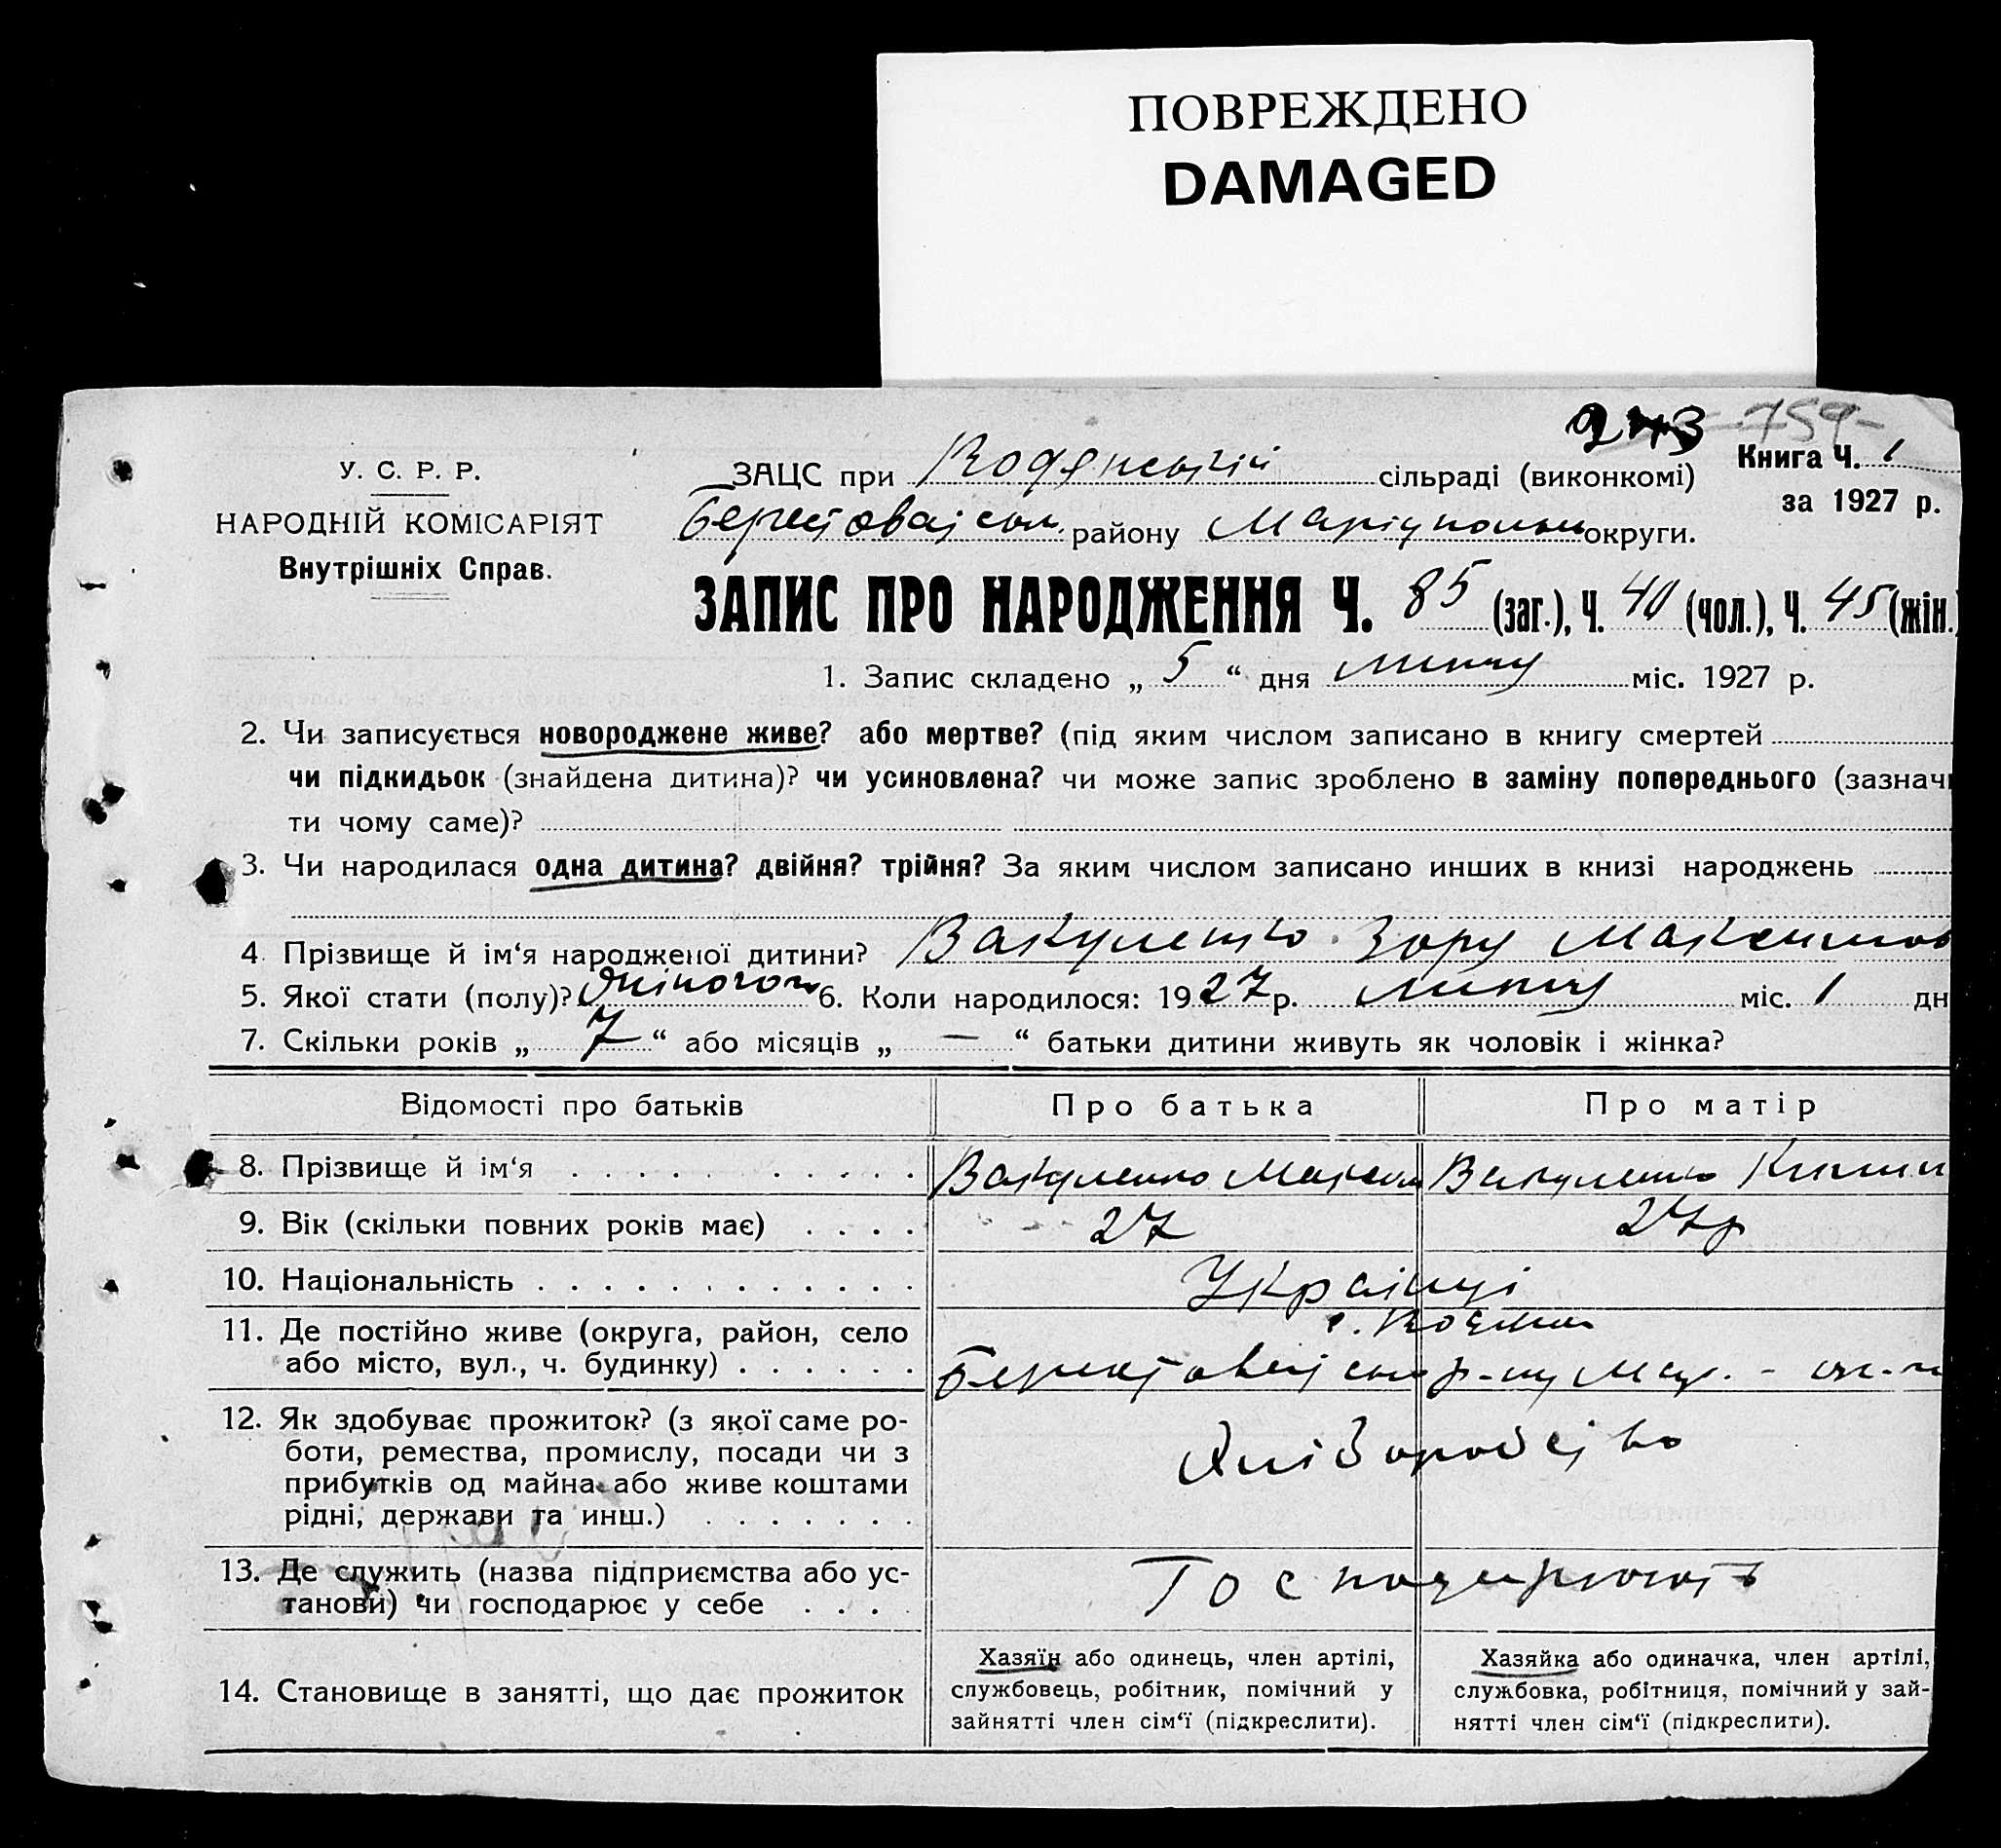 ПОВРЕЖДЕНО
DAMAGED
243 759-
У. С. Р. Р.
НАРОДНІЙ КОМІСАРІЯТ
Внутрішніх Справ.
ЗАЦС при Водянській сільраді (виконкомі)
Книга Ч. 1
за 1927 р.
району округи.
ЗАПИС ПРО НАРОДЖЕННЯ Ч. 85 (заг.), Ч. 40 (чол.), Ч. 45 (жін.)
1. Запис складено „ 5 “ дня липня міс. 1927 р.
2. Чи записується новороджене живе? або мертве? (під яким числом записано в книгу смертей
чи підкидьок (знайдена дитина)? чи усиновлена? чи може запис зроблено в заміну попереднього (зазначи
ти чому саме)?
3. Чи народилася одна дитина? двійня? трійня? За яким числом записано инших в книзі народжень
4. Прізвище й ім‘я народженої дитини? Вакуленко Зору Максимов
5. Якої стати (полу)? жіночого 6. Коли народилося: 1927 р. липня міс. 1 дн
7. Скільки років „ 7 “ або місяців „ — “ батьки дитини живуть як чоловік і жінка?
Відомості про батьків Про батька Про матір
8. Прізвище й ім‘я Вакуленко Максим Вакуленко
9. Вік (скільки повних років має) 27 27р
10. Національність Українці
11. Де постійно живе (округа, район, село
або місто, вул., ч. будинку)
12. Як здобуває прожиток? (з якої саме ро-
боти, ремества, промислу, посади чи з
прибутків од майна або живе коштами
рідні, держави та инш.) Хліборобство
13. Де служить (назва підприємства або ус-
танови) чи господарює у себе Господарюють
14. Становище в занятті, що дає прожиток
Хазяїн або одинець, член артілі,
службовець, робітник, помічний у
зайнятті член сім‘ї (підкреслити).
Хазяйка або одиначка, член артілі,
службовка, робітниця, помічний у зай-
нятті член сім‘ї (підкреслити).